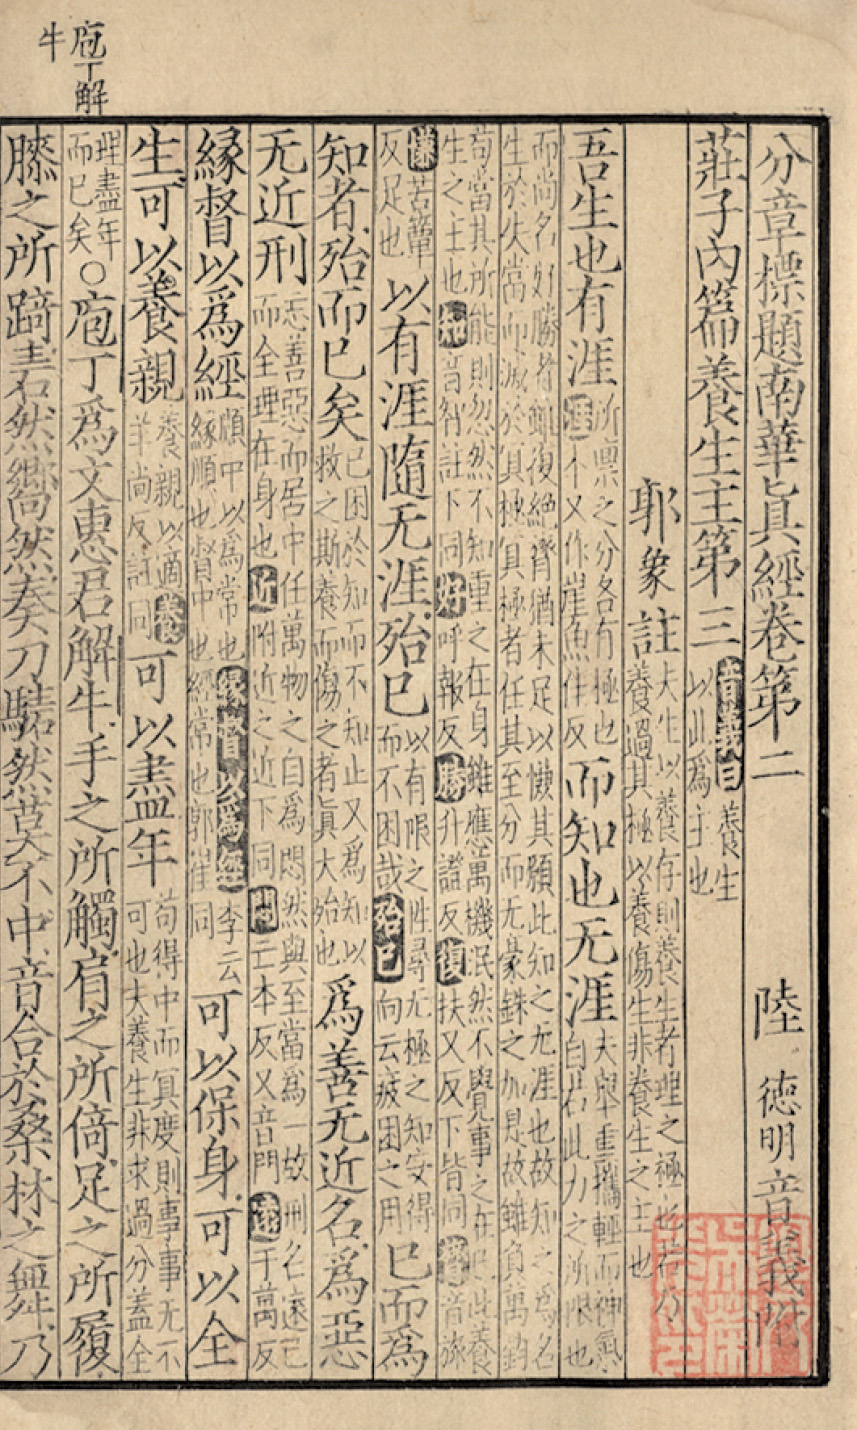 分章標題南華眞經卷第二 陸 德明 音義附
莊子內篇養生主第三 音義曰養生以此爲主也
郭象 註 夫生以養存則養生者理之極也若乃養過其極以養傷生非養生之主也
吾生也有涯 所禀之分各有極也涯本又作崖魚佳反 而知也无涯 夫舉重攜輕而神氣自若此力之所限也
而尚名好勝者雖復絶膂猶未足以慊其願此知之无涯也故知之爲名生於失當而滅於冥極冥極者任其至分而无毫銖之加是故雖負萬鈞
苟當其所能則忽然不知重之在身雖應萬機泯然不覺事之在己此養生之主也知音智註下同好呼報反勝升證反復扶又反下皆同膂音旅
慊苦簟反足也 以有涯隨无涯殆已 以有限之性尋无極之知安得而不困哉殆已向云疲困之用 已而爲
知者殆而已矣 已困於知而不知止又爲知以救之斯養而傷之者眞大殆也 爲善无近名爲惡
无近刑 忘善惡而居中任萬物之自爲悶然與至當爲一故刑名遠己而全理在身也近附近之近下同悶亡本反又音門遠于萬反
緣督以爲經 順中以爲常也緣督以爲經李云緣順也督中也經常也郭崔同 可以保身可以全
生可以養親 養親以適養羊尚反註同 可以盡年 苟得中而冥度則事事无不可也夫養生非求過分蓋全
理盡年而已矣○庖丁爲文惠君解牛手之所觸肩之所倚足之所履
膝之所踦砉然嚮然奏刀騞然莫不中音合於桑林之舞乃
庖丁解
牛